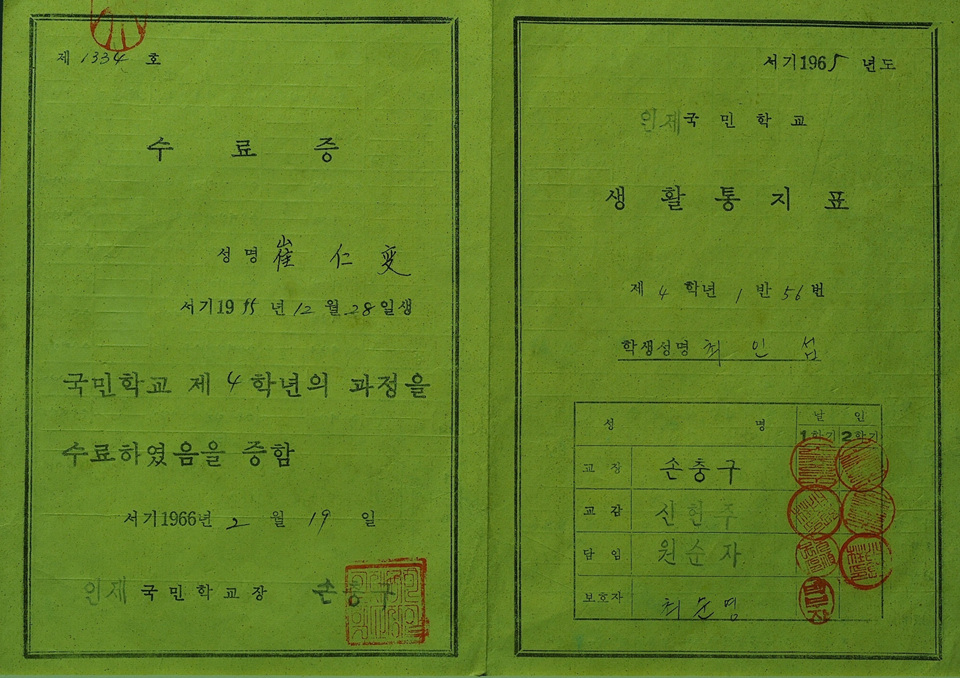 제 1334 호
수 료 증
성명 崔 仁 燮
서기1955년 12월 28일생
국민학교 제 4 학년의 과정을
수료하였음을 증함
서기1966년 2 월 19 일
인제 국민학교장 손충구
서기1965 년도
인제국민학교
생활통지표
제 4 학년 1 반 56번
학생성명 최 인 섭
성 명 날 인
1학기 2학기
교장 손충구
교감 신현주
담임 원순자
보호자 최순명